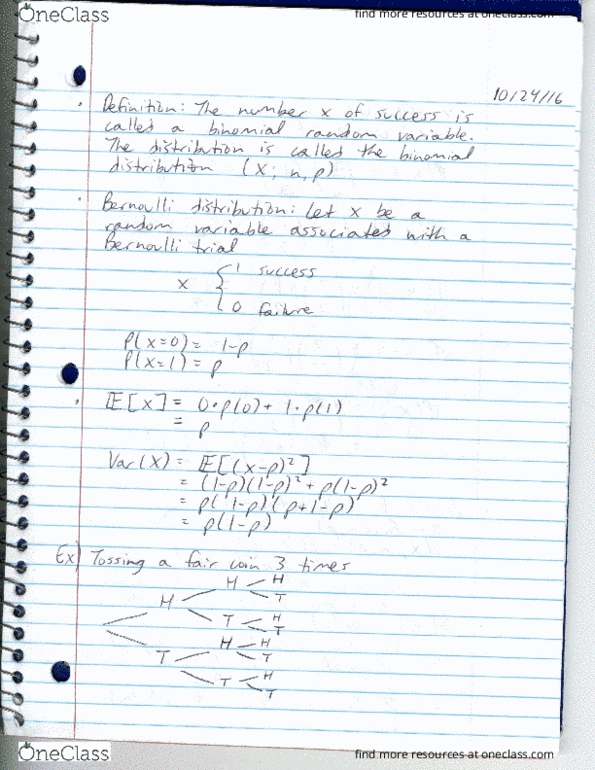 OneClass
find more resources at oneclass.com
10/24/16
• Definition: The number x of success is
called a binomial random variable.
The distribution is called the binomial
distribution (X; n, p)
• Bernoulli distribution: Let x be a
random variable associated with a
Bernoulli trial
x { 1 success
0 failure
P(x=0) = 1-p
P(x=1) = p
• E[x] = 0•p(0) + 1•p(1)
= p
Var(X) = E[(x-p)²]
= (1-p)(1-p)² + p(1-p)²
= p(1-p)(p+1-p)
= p(1-p)
Ex) Tossing a fair coin 3 times
H H
T
H T H
T
T H H
T
T H
T
OneClass
find more resources at oneclass.com